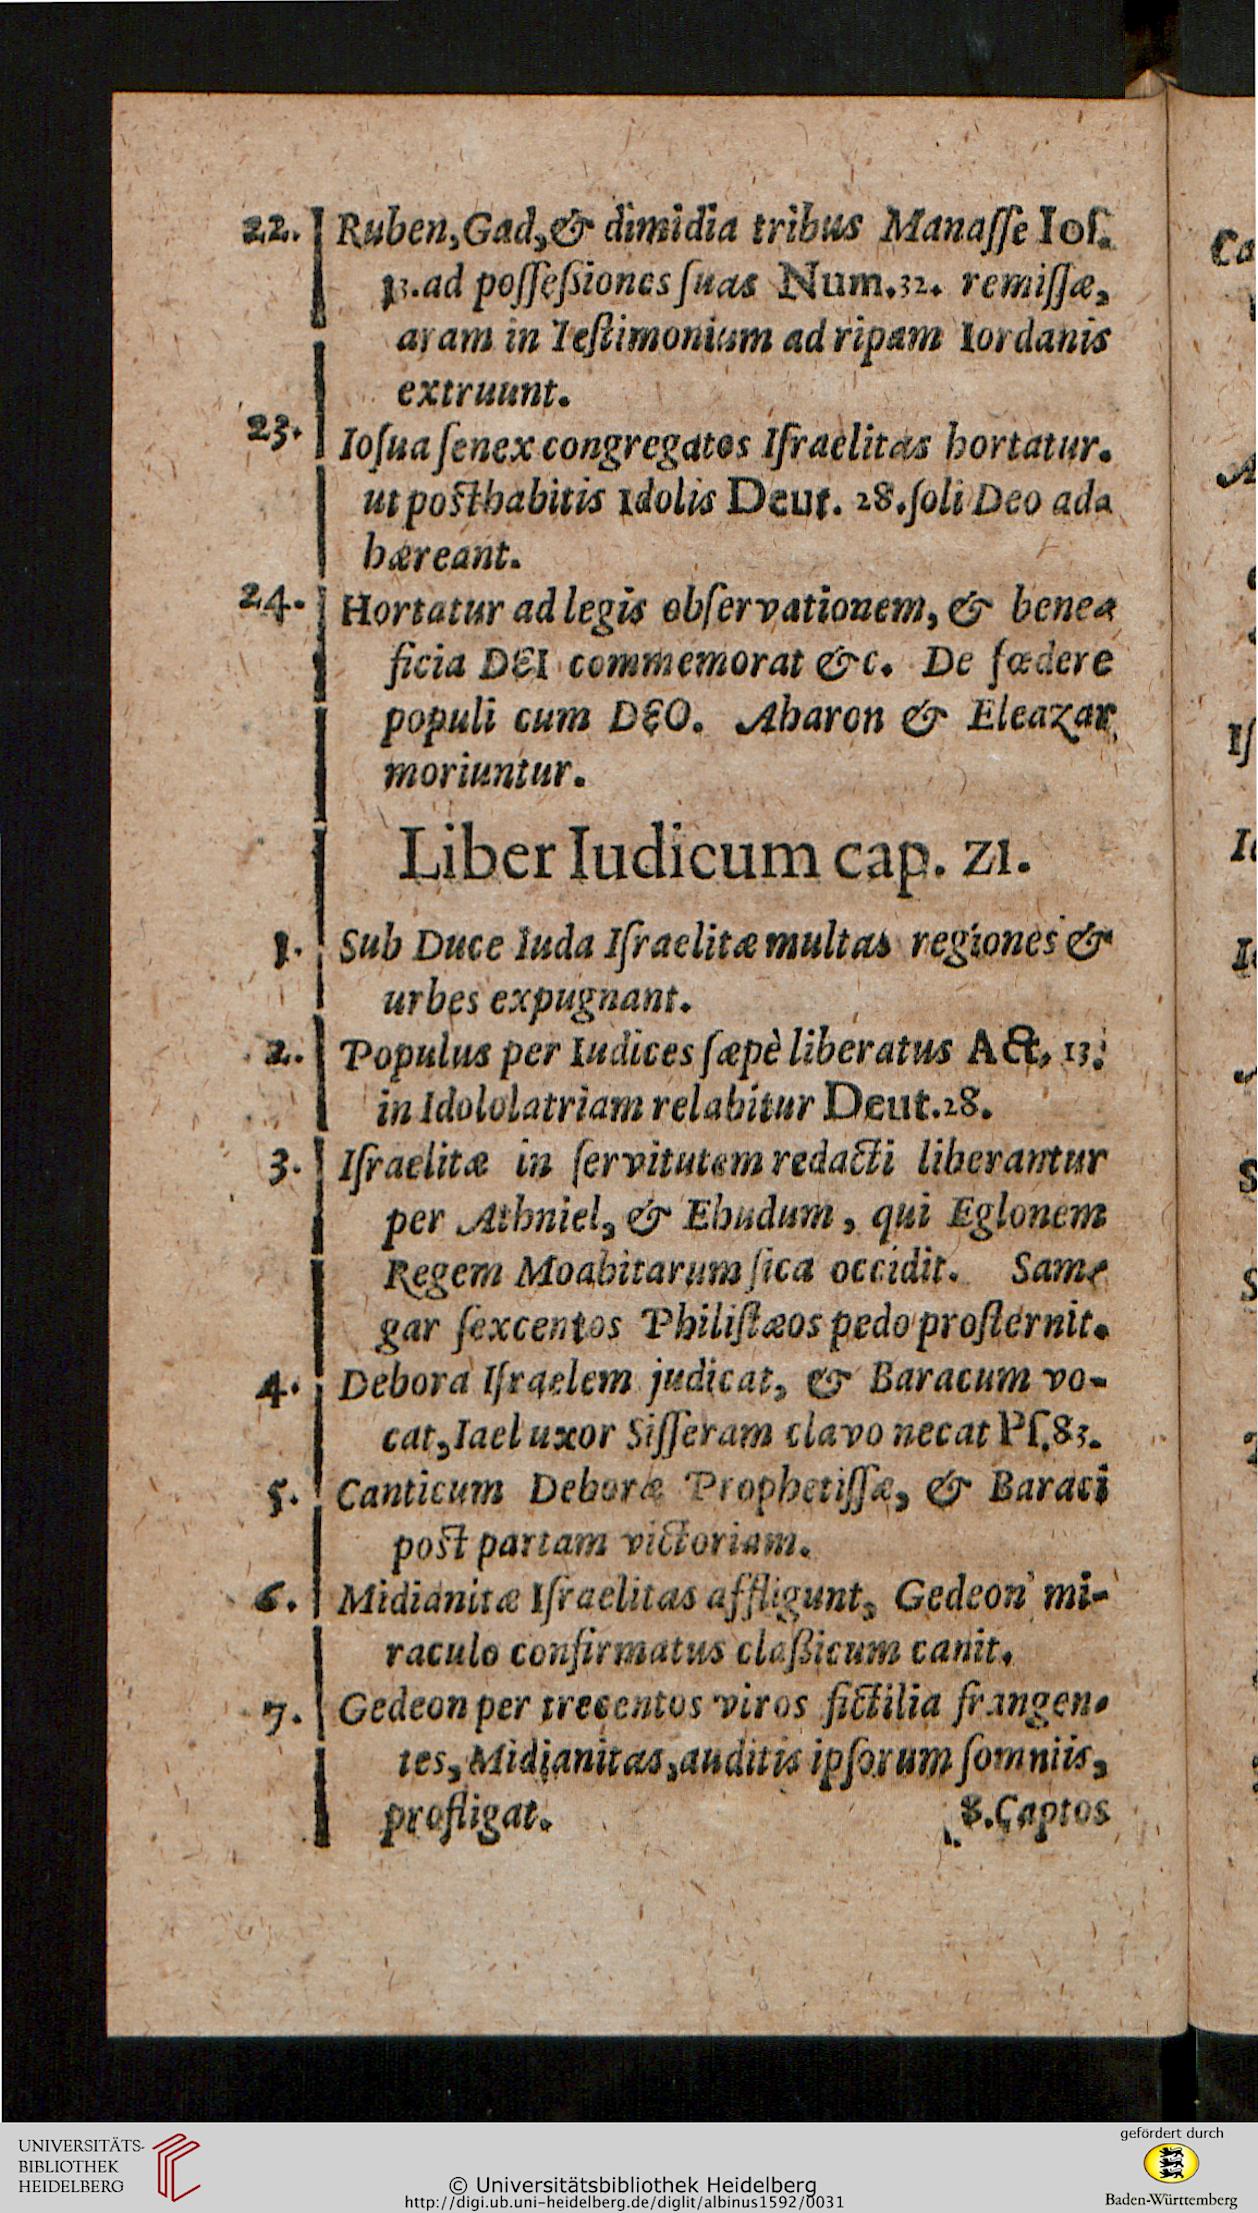 22. Ruben, Gad, & dimidia tribus Manaſſe Ioſ.
13. ad poſſeßiones ſuas Num. 32. remiſſæ,
aram in Teſtimonium ad ripam Iordanis
extruunt.
23. Ioſua ſenex congregatos Iſraelitas hortatur.
ut posthabitis Idolis Deut. 28. ſoli Deo ada
hæreant.
24. Hortatur ad legis obſervationem, & benea
ficia DEI commemorat &c. De fœdere
populi cum DEO. Aharon & Eleazar
moriuntur.
Liber Iudicum cap. 21.
1. Sub Duce Iuda Iſraelitæ multas regiones &
urbes expugnant.
2. Populus per Iudices ſæpè liberatus Act. 13.
in Idololatriam relabitur Deut. 28.
3. Iſraelitæ in ſervitutem redacti liberantur
per Athniel, & Ehudum, qui Eglonem
Regem Moabitarum ſica occidit. Same
gar ſexcentos Philiſtæos pedo proſternit.
4. Debora Iſraelem judicat, & Baracum vo-
cat, Iael uxor Siſſeram clavo necat Pſ. 83.
5. Canticum Deboræ Prophetiſſæ, & Baraci
post partam victoriam.
6. Midianitæ Iſraelitas affligunt, Gedeon mi-
raculo confirmatus claßicum canit.
7. Gedeon per trecentos viros fictilia frangen-
tes, Midianitas, auditis ipſorum ſomniis,
profligat.
8. Captos
UNIVERSITÄTS-
BIBLIOTHEK
HEIDELBERG
© Universitätsbibliothek Heidelberg
http://digi.ub.uni-heidelberg.de/diglit/albinus1592/0031
gefördert durch
Baden-Württemberg